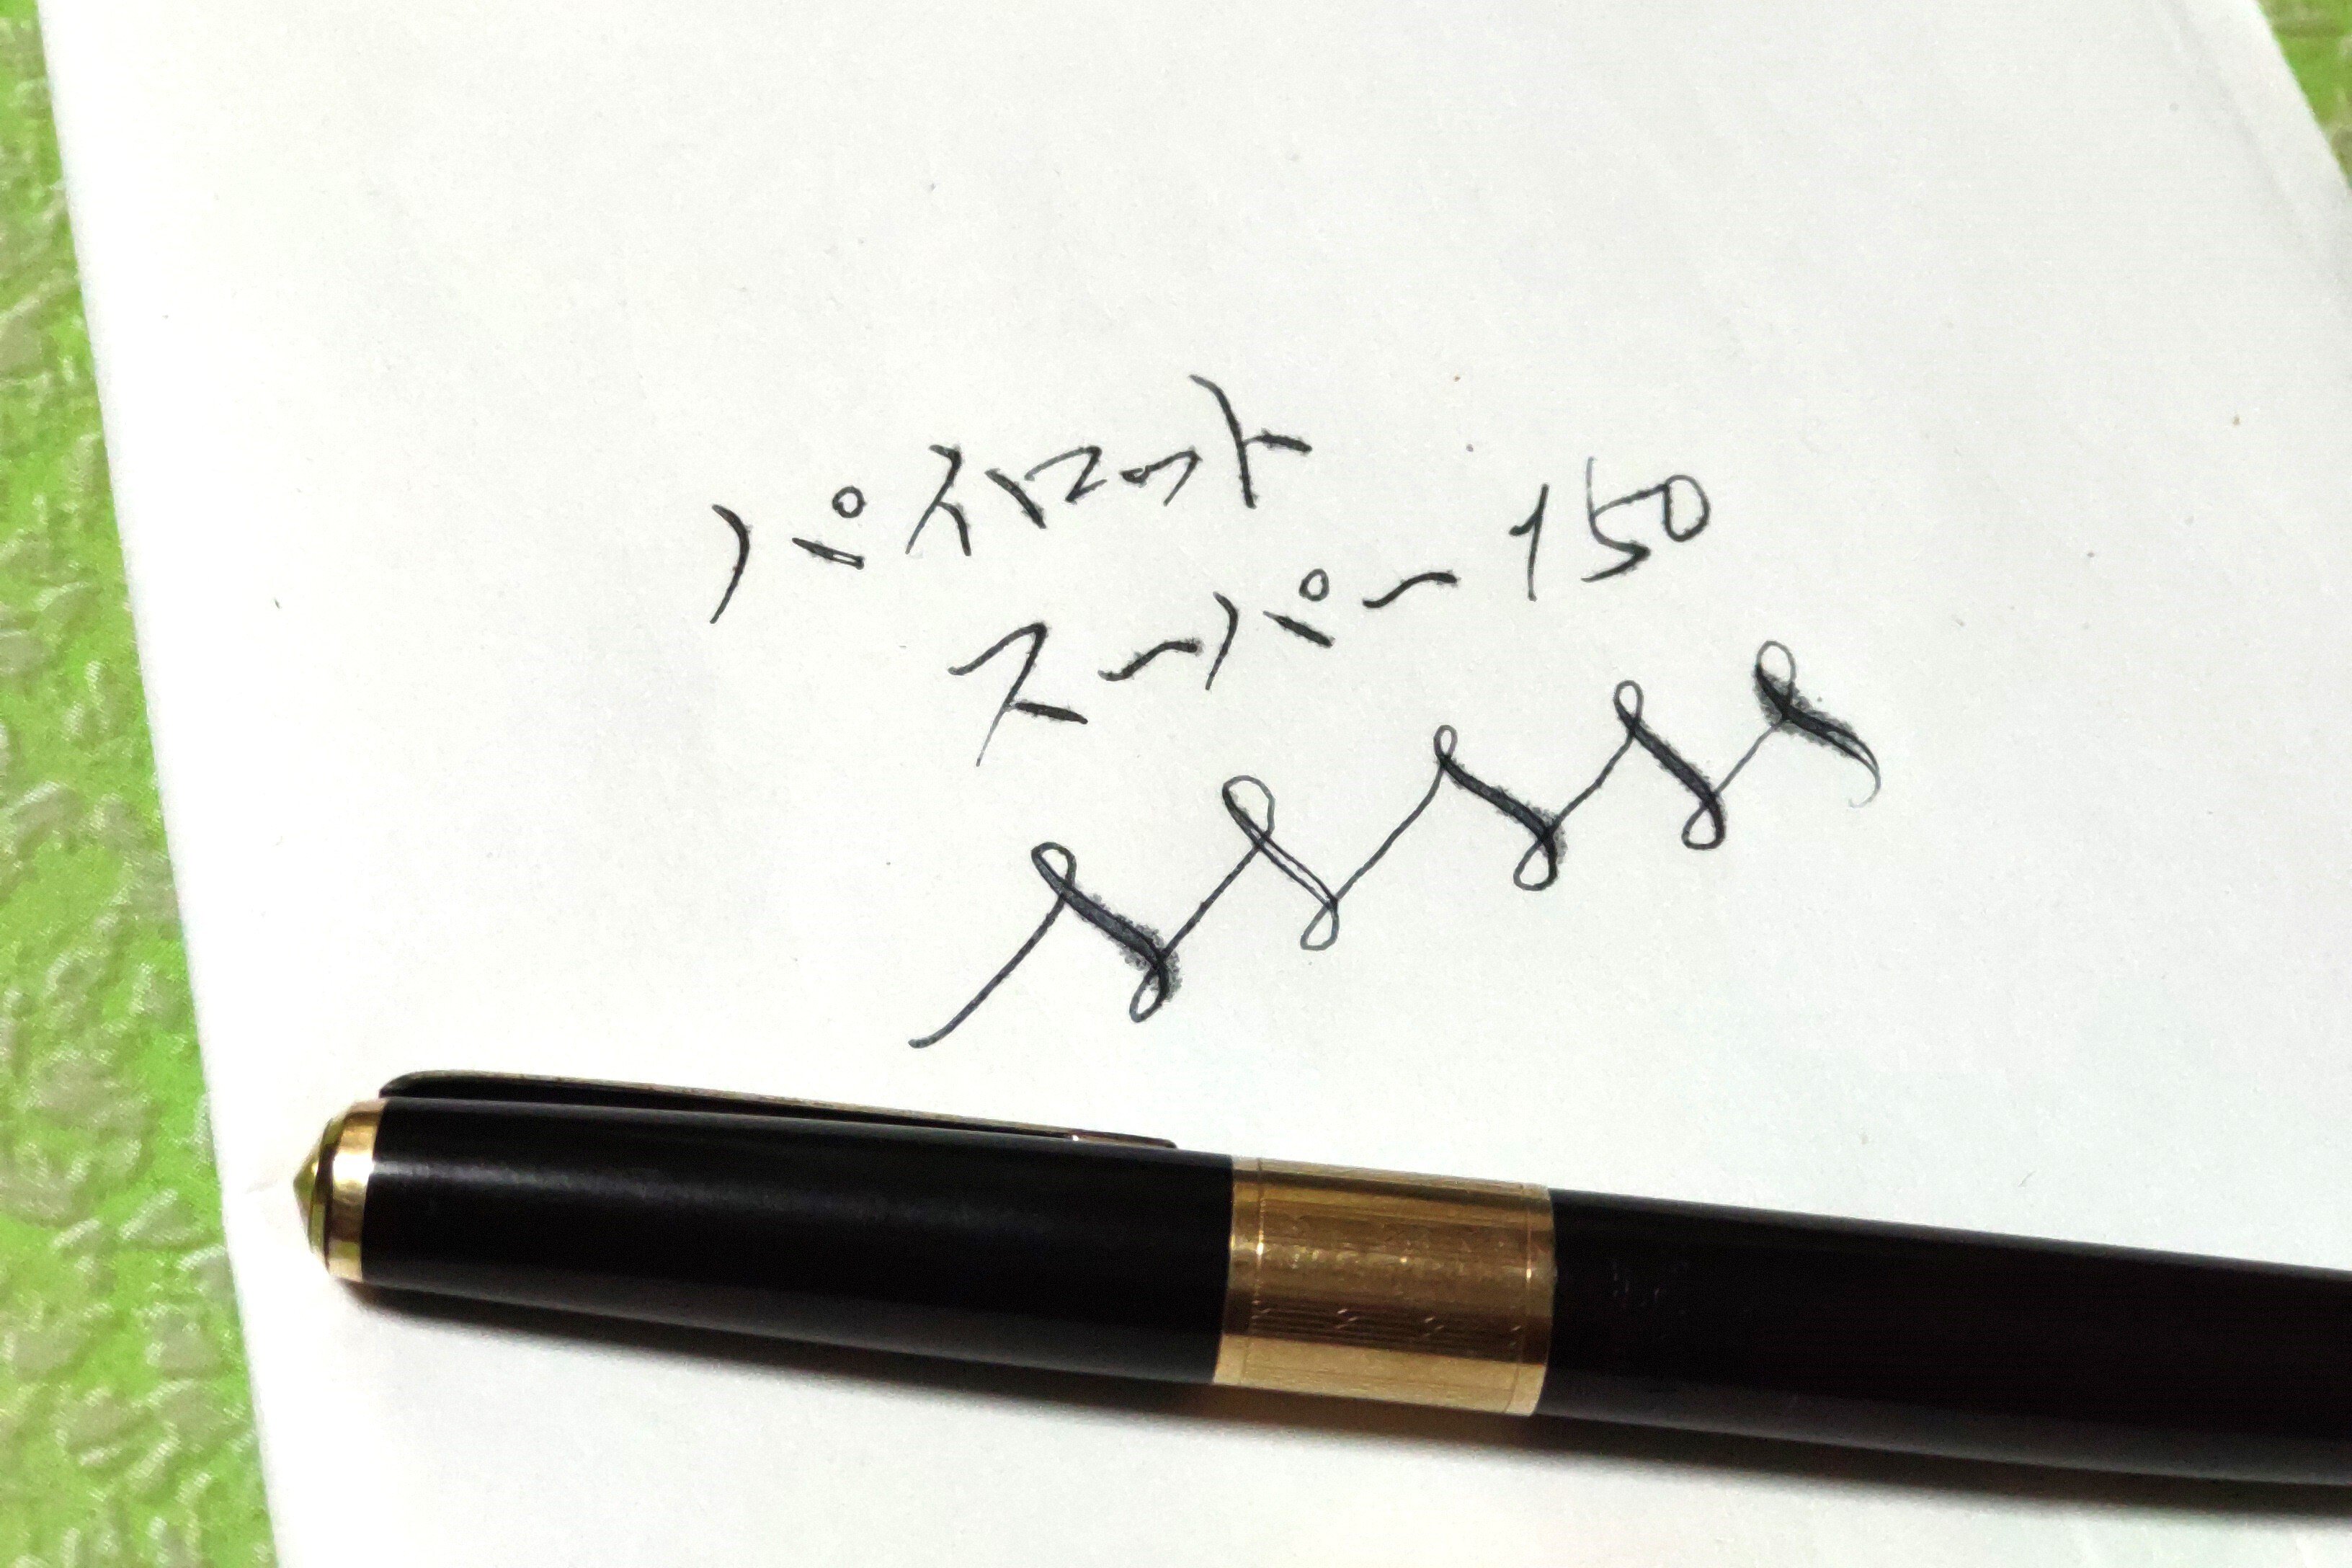 パイロット
スーパー150